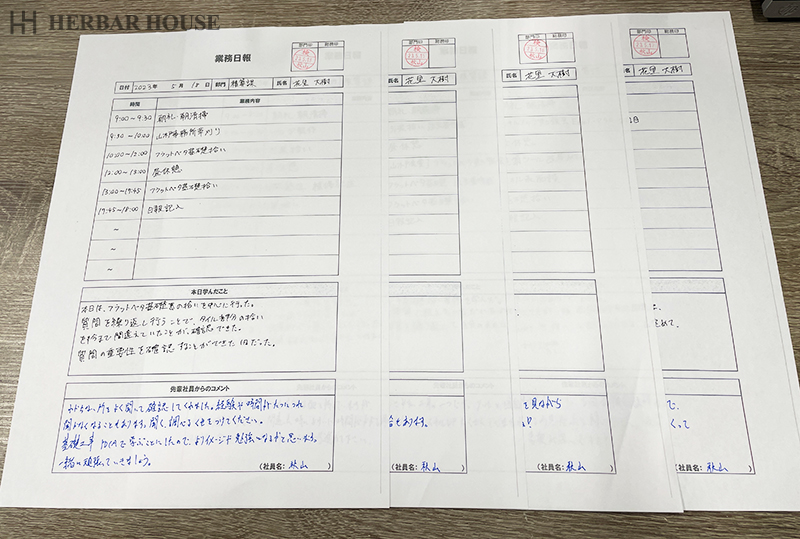 HERBAR HOUSE
業務日報
部門印 総務印
日付 2023年 5月 18日 部門 積算課 氏名 花里 大樹
時間 業務内容
9:00~9:30 朝礼・朝清掃
9:30~10:00 草刈り
10:00~12:00 フラットベタ基礎拾い
12:00~13:00 昼休憩
13:00~17:45 フラットベタ基礎拾い
17:45~18:00 日報記入
~
~
~
本日学んだこと
本日は、フラットベタ基礎の拾いを中心に行った。
質問を繰り返し行うことで、タイル部分の拾い
を今まで間違えていたことが、確認できた。
質問の重要性を確認することができた1日だった。
先輩社員からのコメント
わからない所をよく聞いて確認してくれました。経験や時間がたつにつれ
聞けなくなることもあります。聞く、調べるくせをつけてください。
基礎工事 学ぶことにしたので、よりイメージや勉強になるかと思います。
一緒に頑張っていきましょう。
(社員名: 秋山 )
部門印 総務印
氏名 花里 大樹
合もあります。
(社員名: 秋山 )
部門印 総務印
氏名 花里 大樹
を見ながら
(社員名: 秋山 )
部門印 総務印
氏名 花里 大樹
1日
で、
くって
(社員名: 秋山 )